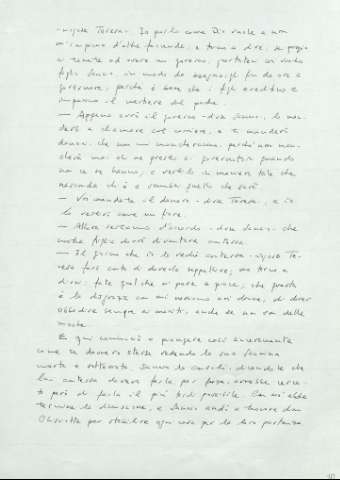 Teresa -. Io parlo come Dio vuole e non
m'impiccio d'altre faccende; e torno a dire, se
ad avere un governo, portatevi con vostro
figlio Sancio, in modo da insegnargli fin da ora a
governare; perché è bene che i figli ereditino e
imparino il mestiere del padre.
— Appena avrò il governo - disse Sancio -, lo man-
derò a chiamare col corriere, e ti manderò
denari, che non mi mancheranno, perché non man-
cherà mai chi ne presti ai governatori quando
non ce ne hanno; e vestilo in maniera tale che
nasconda chi è e sembri quello che sarà.
— Voi mandate il denaro - disse Teresa -, e io
lo vestirò come un fiore.
— Allora restiamo d'accordo - disse Sancio - che
nostra figlia dovrà diventare contessa.
— Il giorno che io la vedrò contessa - rispose Te-
resa farò conto di doverla seppellire; ma torno a
dirvi: fate quel che vi pare e piace, che questa
è la disgrazia con cui nasciamo noi donne, di dover
obbedire sempre ai mariti, anche se son delle
E qui cominciò a piangere così sinceramente
come se davvero stesse vedendo la sua
morta e sotterrata. Sancio la consolò, dicendole che
la contessa doveva farla per forza, avrebbe cerca-
to però di farla il più tardi possibile. Così ebbe
termine la discussione, e Sancio andò a trovare don
Chisciotte per stabilire ogni cosa per la loro partenza